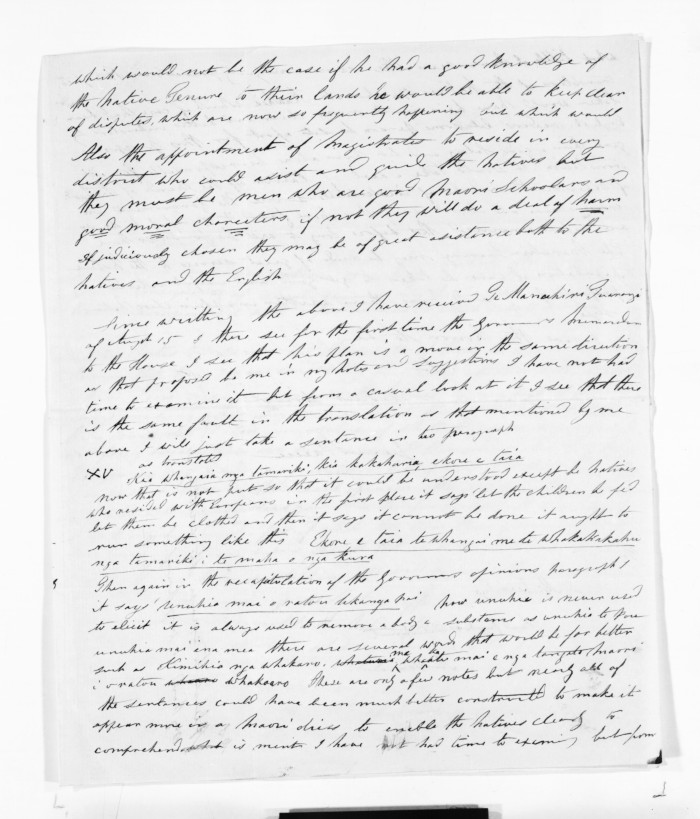 which would not be the case if he had a good knowledge of
the Native Tenure to their lands he would be able to keep clear
of disputes, which are now so frequently happening but which would
Also the appointment of Magistrates to reside in every
district who could asist and guide the Natives but
they must be men who are good Maori Schoolars and
good moral charecters if not they will do a deal of harm
If judiciously chosen they may be of great asistance both to the
natives, and the English
Since writting the above I have received Te Manuhiri Tuarangi
of Augst 15 & there see for the first time the Governors Memorandum
to the House I see that his plan is a move in the same direction
as that proposed be me in my notes and suggestions I have not had
time to examine it but from a casual look at it I see that there
is the same fault in the translation as that mentioned by me
above I will just take a sentence in the paragraph
XV as translated Kia whangaia nga tamariki, kia kakahuria ekore e taea
now that is not put so that it could be understood except be natives
who resided with Europeans in the first place it says let the children be fed
let them be clothed and then it says it cannot be done it aught to
run something like this Ekore e taea te whangai me te whakakakahu
nga tamariki i te maha o nga kura
Then again in the recapitulation of the Governors opinions paragraph
it says unuhia mai o ratou tikanga now unuhia is never used
to elicit it is always used to remove a body a substance as unuhia te
unuhia mai ena mea there are several words that would be far better
such as Kimihia nga whakaro, mai e nga tangata Maori
i o ratou whakaaro There are only a few notes but nearly all of
the sentences could have been much better construted to make it
appear more in a Maori dress to enable the natives clearly to
comprehend what is ment I have not had time to examin, but from